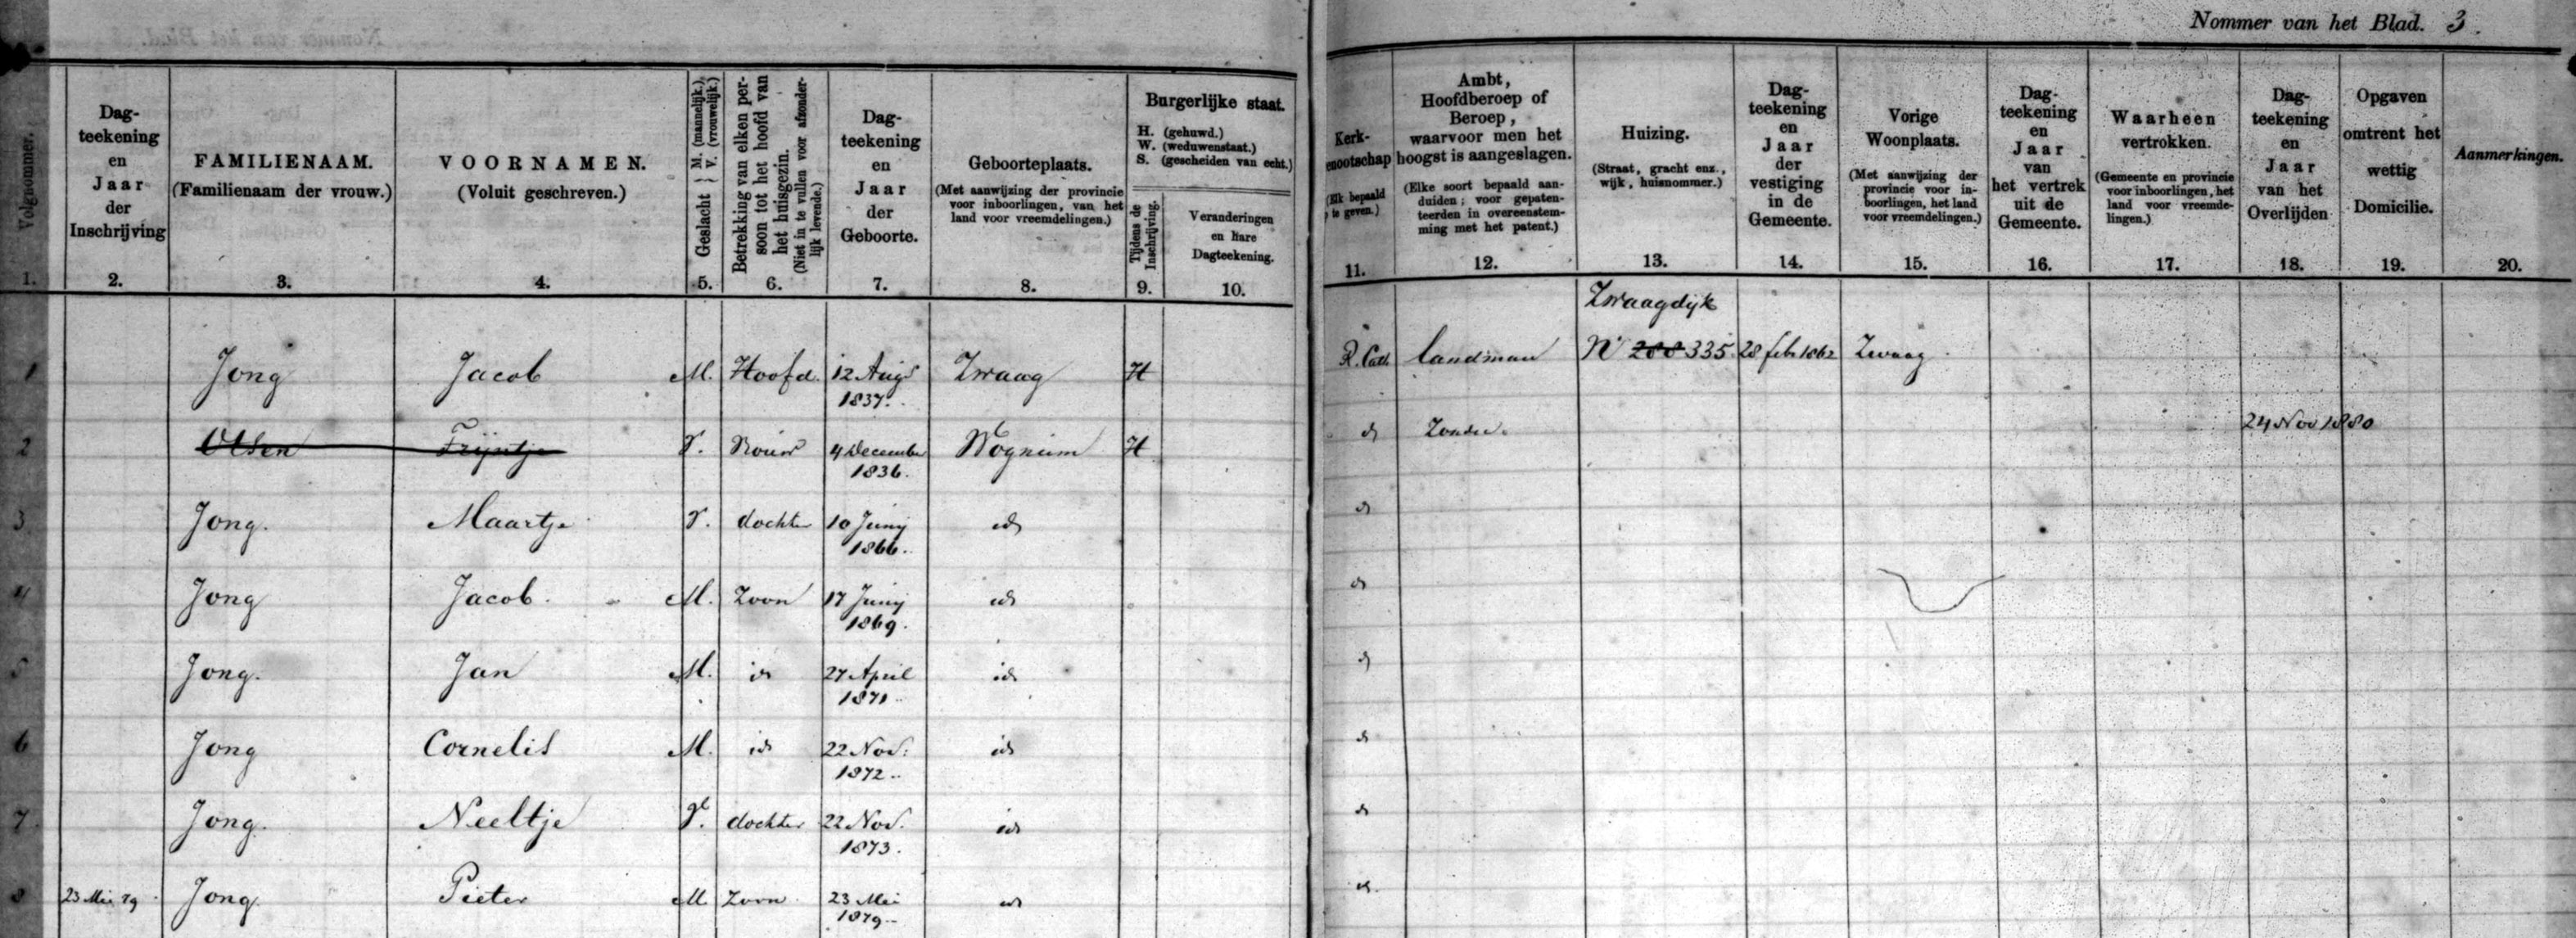 Nommer van het Blad. 3.
Volgnommer.
1.
Dag-
teekening
en
Jaar
der
Inschrijving
2.
FAMILIENAAM.
(Familienaam der vrouw.)
3.
VOORNAMEN.
(Voluit geschreven.)
4.
Geslacht { M. (mannelijk.) V. (vrouwelijk.)
5.
Betrekking van elken per-
soon tot het hoofd van
het huisgezin.
(Niet in te vullen voor afzonder-
lijk levende.)
6.
Dag-
teekening
en
Jaar
der
Geboorte.
7.
Geboorteplaats.
(Met aanwijzing der provincie
voor inboorlingen, van het
land voor vreemdelingen.)
8.
Burgerlijke staat.
H. (gehuwd.)
W. (weduwenstaat.)
S. (gescheiden van echt.)
Tijdens de
Inschrijving.
9.
Veranderingen
en hare
Dagteekening.
10.
Kerk-
enootschap
(Elk bepaald
te geven.)
11.
Ambt,
Hoofdberoep of
Beroep,
waarvoor men het
hoogst is aangeslagen.
(Elke soort bepaald aan-
duiden; voor gepaten-
teerden in overeenstem-
ming met het patent.)
12.
Huizing.
(Straat, gracht enz.,
wijk, huisnommer.)
13.
Dag-
teekening
en
Jaar
der
vestiging
in de
Gemeente.
14.
Vorige
Woonplaats.
(Met aanwijzing der
provincie voor in-
boorlingen, het land
voor vreemdelingen.)
15.
Dag-
teekening
en
Jaar
van
het vertrek
uit de
Gemeente.
16.
Waarheen
vertrokken.
(Gemeente en provincie
voor inboorlingen, het
land voor vreemde-
lingen.)
17.
Dag-
teekening
en
Jaar
van het
Overlijden
18.
Opgaven
omtrent het
wettig
Domicilie.
19.
Aanmerkingen.
20.
Zwaagdijk
1 Jong Jacob M. Hoofd. 12 Augs Zwaag H R. Cath. landman No 288 335. 28 feb 1862 Zwaag
1837.
2 Olsen Trijntje V. Vrouw 4 December Wognum H id Zonder 24 Nov 1880
1836.
3 Jong. Maartje V. dochter 10 Junij id id
1866.
4 Jong Jacob. M. Zoon 17 Junij id id
1869.
5 Jong. Jan M. id 27 April id id
1871
6 Jong Cornelis M. id 22 Nov: id id
1872
7 Jong. Neeltje V. dochter 22 Nov. id id
1873.
8 23 Mei 79 Jong Pieter M Zoon 23 Mei id id
1879